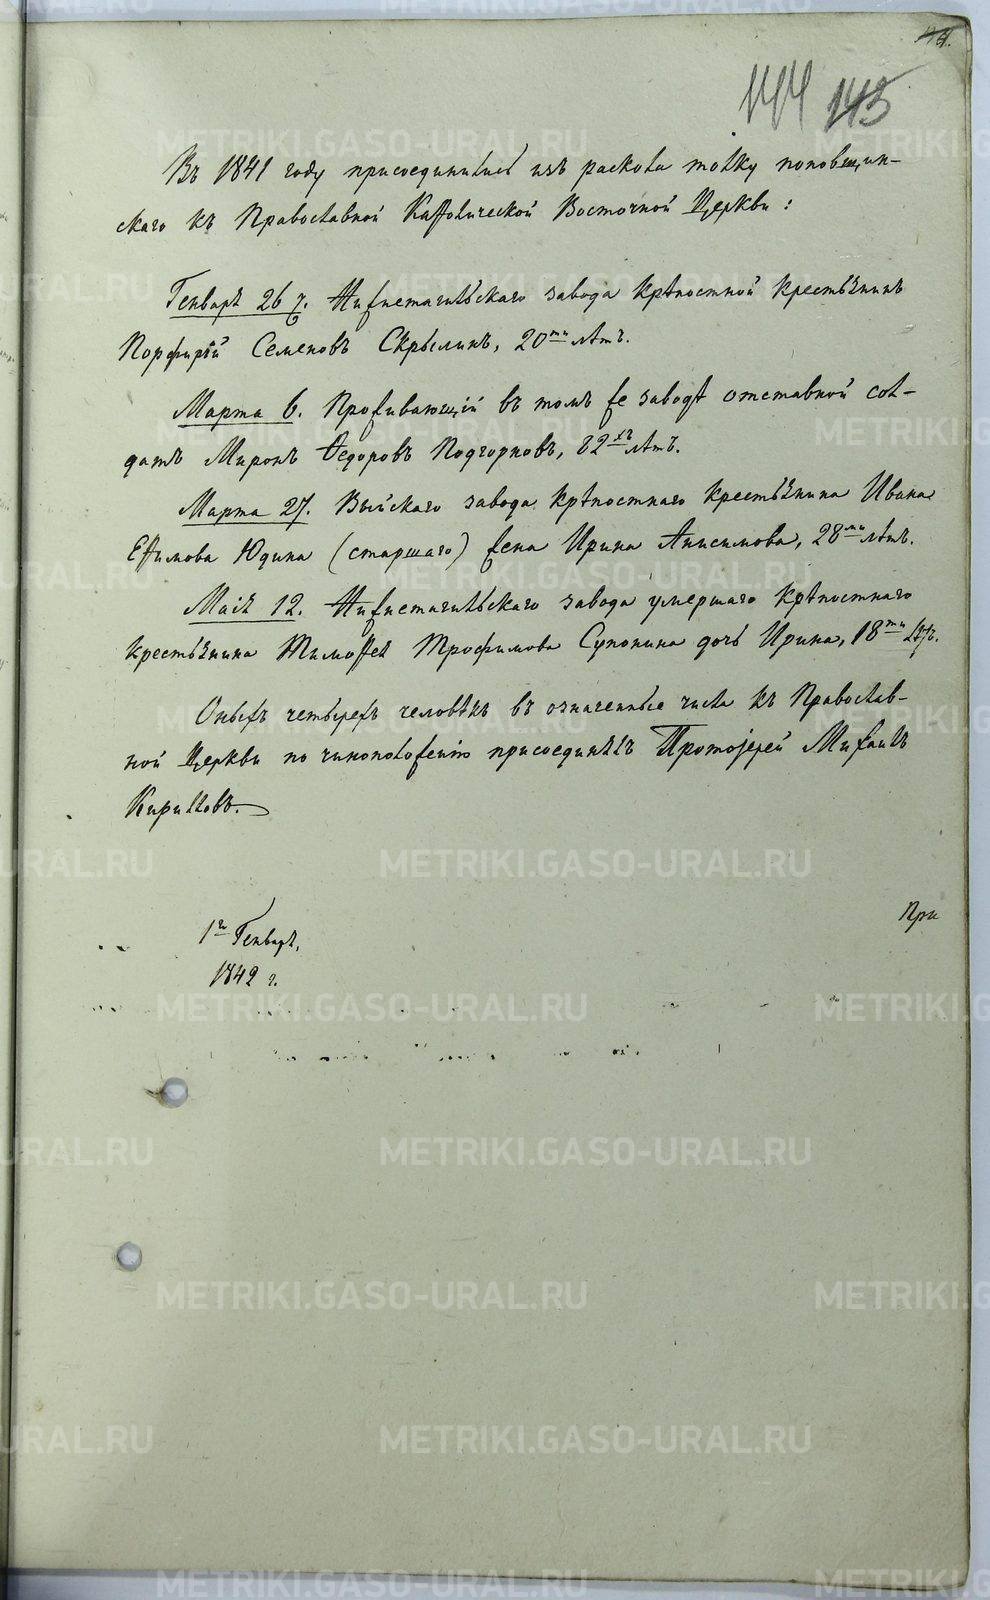 144 143
Въ 1841 году присоединились изъ раскола толку поповщин-
скаго къ Православной Каѳолической Восточной Церкви:
Генваря 26 г. Нижнетагильскаго завода крѣпостной крестьянинъ
Порфирій Семеновъ Скрылинъ, 20ти лѣтъ.
Марта 6. Проживающій въ томъ же заводѣ отставной сол-
датъ Миронъ Ѳедоровъ Подгорновъ, 82хъ лѣтъ.
Марта 27. Выйскаго завода крѣпостнаго крестьянина Ивана
Еѳимова Юдина (старшаго) жена Ирина Анисимова, 28ми лѣтъ.
Маія 12. Нижнетагильскаго завода умершаго крѣпостнаго
крестьянина Тимоѳея Трофимова Супонина дочь Ирина, 18ти лѣтъ.
Оныхъ четырехъ человѣкъ въ означенные числа къ Православ-
ной Церкви по чиноположенію присоединялъ Протоіерей Михаилъ
Кирилловъ.
При
1го Генваря,
1842 г.
METRIKI.GASO-URAL.RU